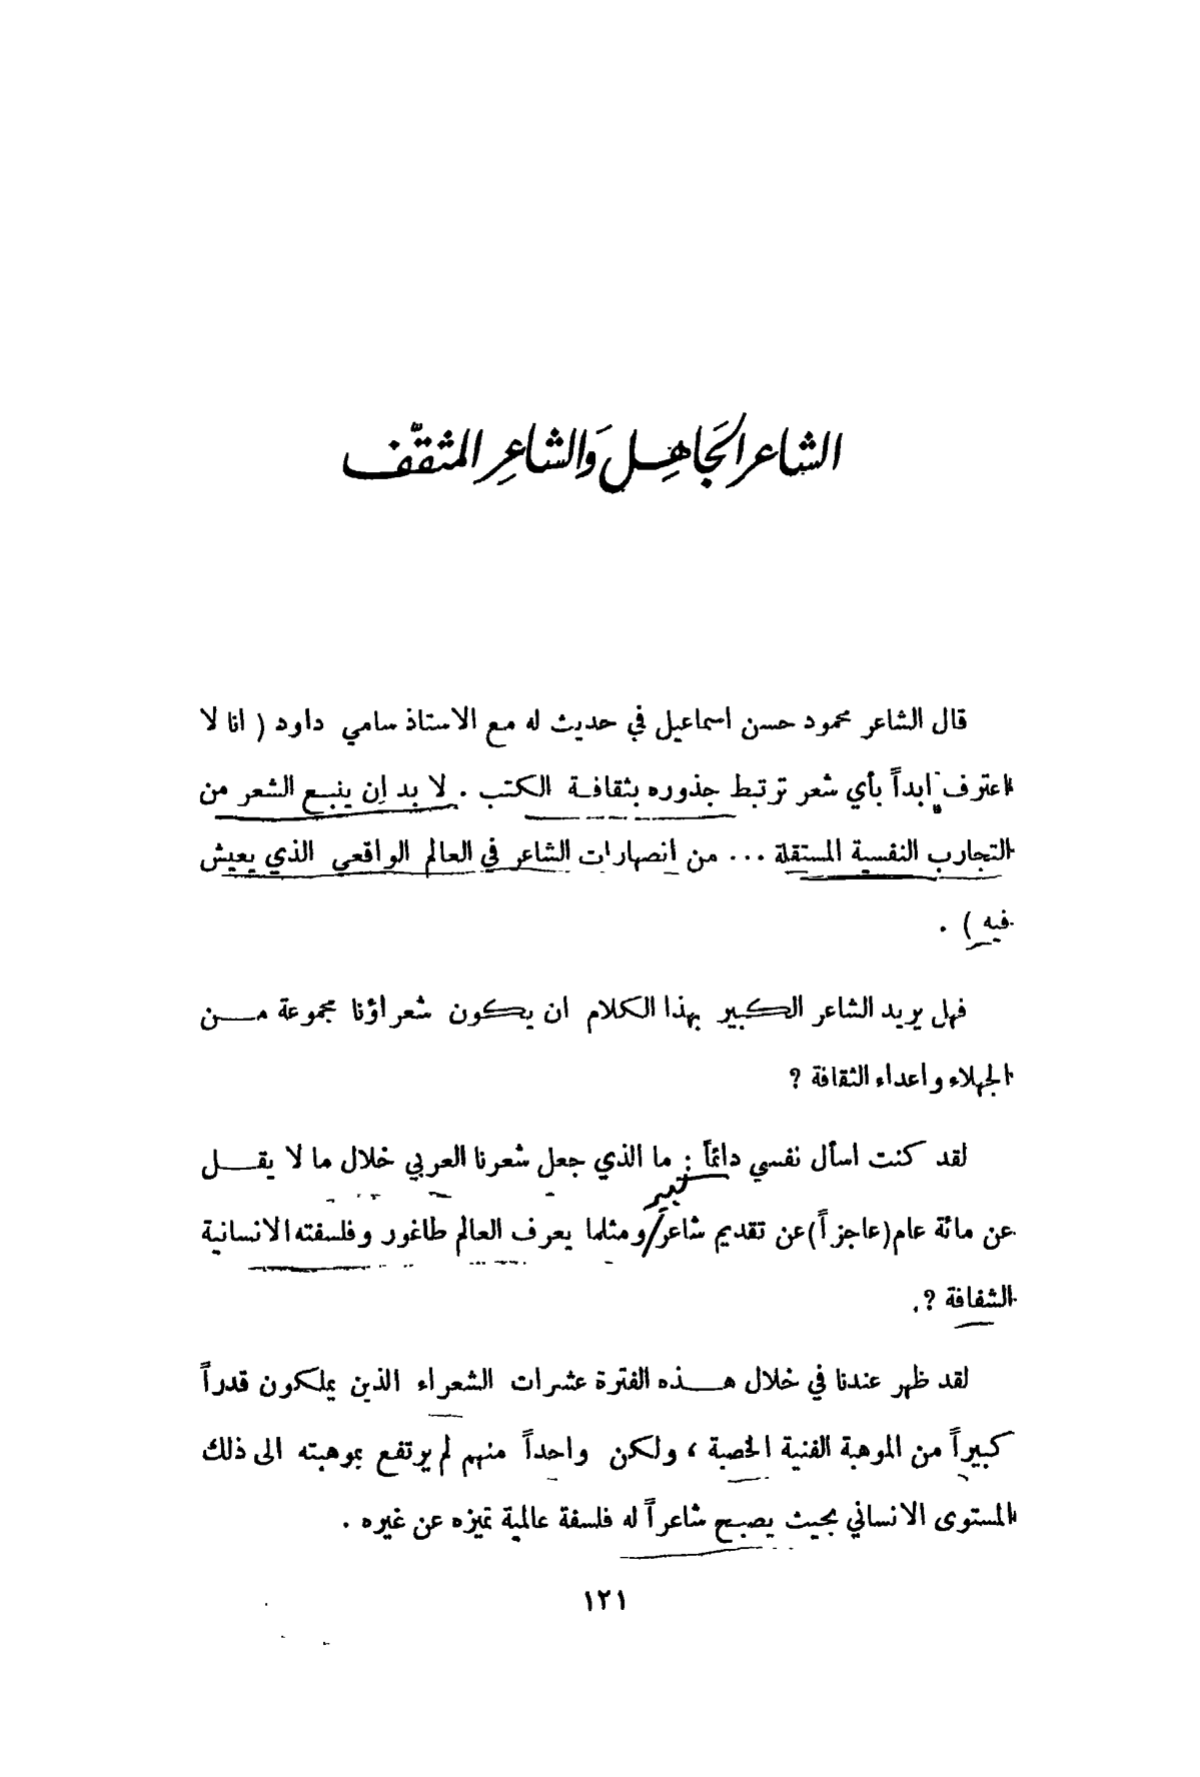 الشاعر الجَاهِل وَالشاعِر المثقّف
قال الشاعر محمود حسن اسماعيل في حديث له مع الاستاذ سامي داود ( انا لا
اعترف ابداً بأي شعر ترتبط جذوره بثقافة الكتب . لا بد إن ينبع الشعر من
التجارب النفسية المستقلة ... من انصهارات الشاعر في العالم الواقعي الذي يعيش
فيه ) .
فهل يريد الشاعر الكبير بهذا الكلام ان يكون شعراؤنا مجموعة من
الجهلاء واعداء الثقافة ؟
لقد كنت اسأل نفسي دائماً : ما الذي جعل شعرنا العربي خلال ما لا يقل
كبير
عن مائة عام (عاجزاً) عن تقديم شاعر/ومثلما يعرف العالم طاغور وفلسفته الانسانية
الشفافة ؟.
لقد ظهر عندنا في خلال هذه الفترة عشرات الشعراء الذين يملكون قدراً
كبيراً من الموهبة الفنية الخصبة ، ولكن واحداً منهم لم يرتفع بموهبته الى ذلك
المستوى الانساني بحيث يصبح شاعراً له فلسفة عالمية تميزه عن غيره .
١٢١